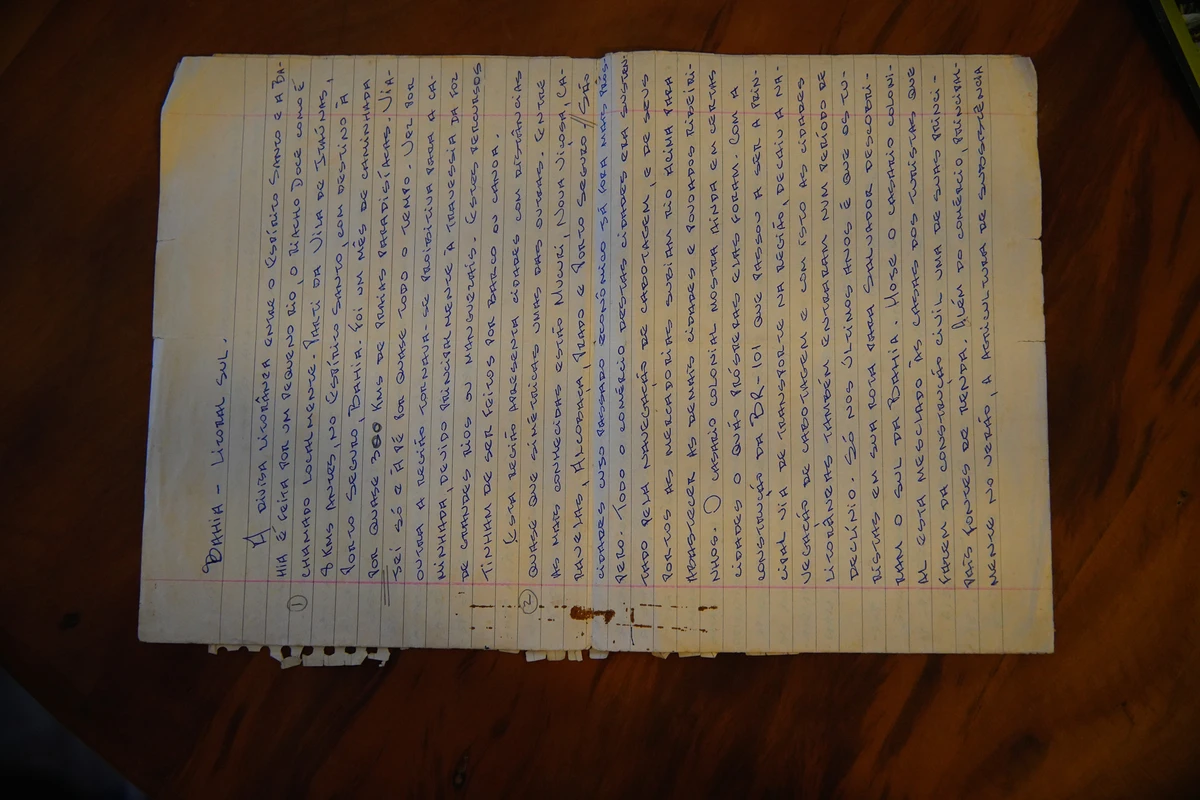 BAHIA - LITORAL SUL.
A DIVISA LITORÂNEA ENTRE O ESPÍRITO SANTO E A BA-
HIA É FEITA POR UM PEQUENO RIO, O RIACHO DOCE COMO É
① CHAMADO LOCALMENTE. PARTI DA VILA DE ITAÚNAS,
8 KMS ANTES, NO ESPÍRITO SANTO, COM DESTINO A
PORTO SEGURO, BAHIA. FOI UM MÊS DE CAMINHADA
POR QUASE 300 KMS DE PRAIAS PARADISÍACAS. VIA-
JEI SÓ E À PÉ POR QUASE TODO O TEMPO. VEZ POR
OUTRA A REGIÃO TORNAVA-SE PROIBITIVA PARA A CA-
MINHADA, DEVIDO PRINCIPALMENTE À TRAVESSIA DA FOZ
DE GRANDES RIOS OU MANGUEZAIS. ESTES PERCURSOS
TINHAM DE SER FEITOS POR BARCO OU CANOA.
ESTA REGIÃO APRESENTA CIDADES COM DISTÂNCIAS
② QUASE QUE SIMÉTRICAS UMAS DAS OUTRAS. ENTRE
AS MAIS CONHECIDAS ESTÃO MUCURI, NOVA VIÇOSA, CA-
RAVELAS, ALCOBAÇA, PRADO E PORTO SEGURO. // SÃO
CIDADES CUJO PASSADO ECONÔMICO JÁ FORA MAIS PRÓS-
PERO. TODO O COMÉRCIO DESTAS CIDADES ERA SUSTEN-
TADO PELA NAVEGAÇÃO DE CABOTAGEM, E DE SEUS
PORTOS AS MERCADORIAS SUBIAM RIO ACIMA PARA
ABASTECER AS DEMAIS CIDADES E POVOADOS RIBEIRI-
NHOS. O CASARIO COLONIAL MOSTRA AINDA EM CERTAS
CIDADES O QUÃO PRÓSPERAS ELAS FORAM. COM A
CONSTRUÇÃO DA BR-101 QUE PASSOU A SER A PRIN-
CIPAL VIA DE TRANSPORTE NA REGIÃO, DECAIU A NA-
VEGAÇÃO DE CABOTAGEM E COM ISTO AS CIDADES
LITORÂNEAS TAMBÉM ENTRARAM NUM PERÍODO DE
DECLÍNIO. SÓ NOS ÚLTIMOS ANOS É QUE OS TU-
RISTAS EM SUA ROTA PARA SALVADOR DESCOBRI-
RAM O SUL DA BAHIA. HOJE O CASARIO COLONI-
AL ESTA MESCLADO ÀS CASAS DOS TURISTAS QUE
FAZEM DA CONSTRUÇÃO CIVIL UMA DE SUAS PRINCI-
PAIS FONTES DE RENDA. ALÉM DO COMÉRCIO PRINCIPAL-
MENTE NO VERÃO, A AGRICULTURA DE SUBSISTÊNCIA